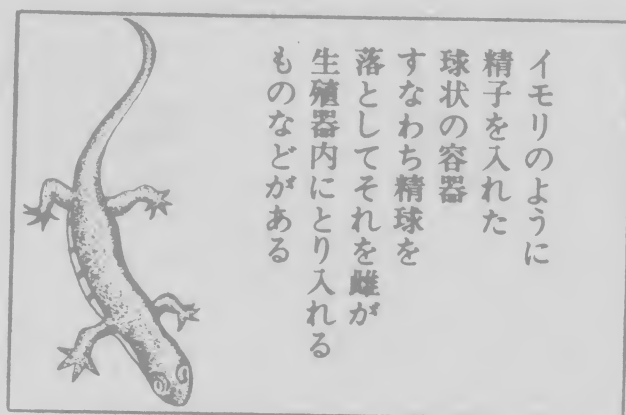 イモリのように
精子を入れた
球状の容器
すなわち精球を
落としてそれを雌が
生殖器内にとり入れる
ものなどがある